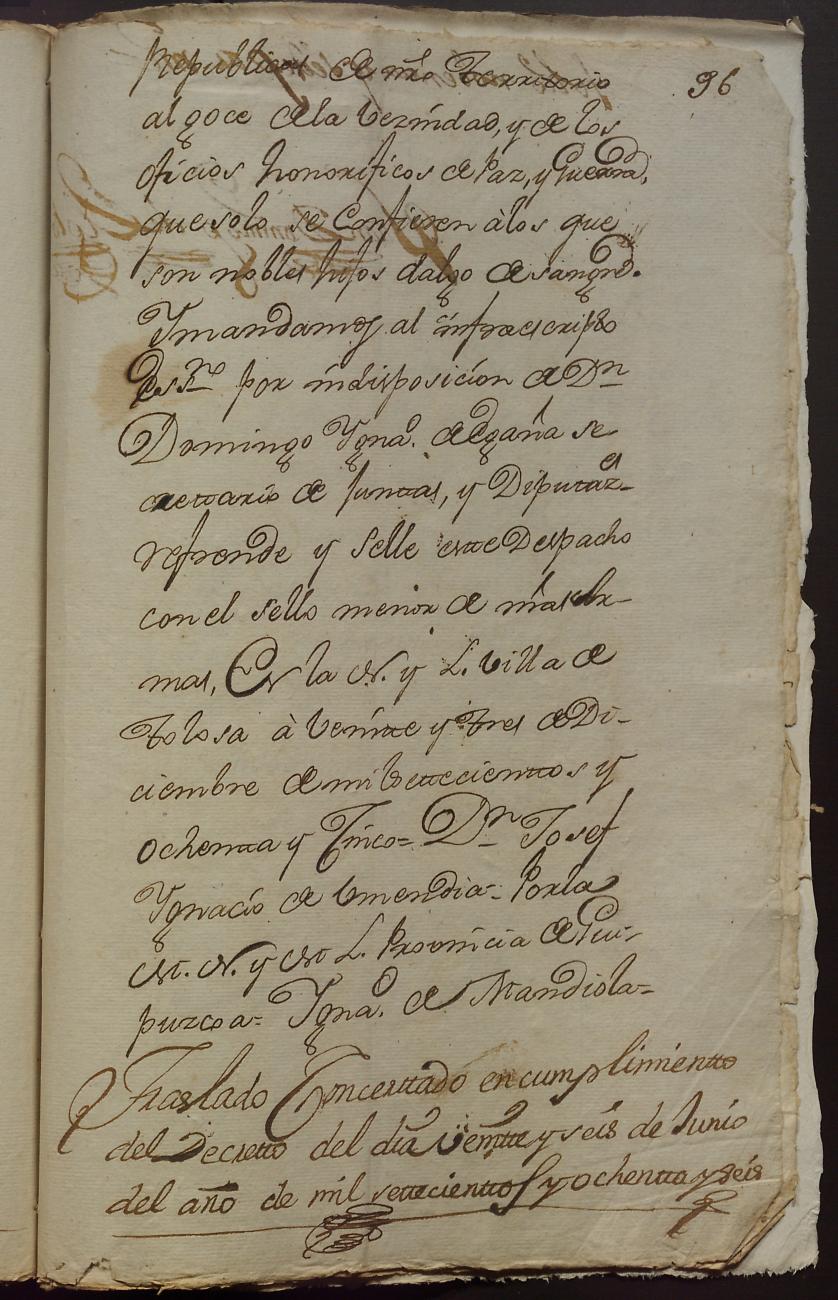 Republicas de nrō Territorio
96
al goce de la Vezindad, y de los
oficios honorificos de Paz, y Guerra,
que solo se Confieren à los que
son nobles hijos dalgo de sangre.
Y mandamos al infraescripto
Essno por indisposicion de Dn
Domingo Ygnao. de Egaña se
cretario de Juntas, y Diputazes
refrende y selle este Despacho
con el sello menor de nrãs Ar-
mas, En la N. y L. Villa de
Tolosa à Veinte y tres de Di-
ciembre de mil settecientos y
ochenta y Cinco= Dn Josef
Ygnacio de Vmendia= Por la
M. N. y M. L. Provincia de Gui-
puzcoa= Ygnao. de Mandiola=
Traslado Concertado en cumplimiento
del Decretto del dia Veintte y seis de Junio
del año de mil settecienttos y ochentta y seis